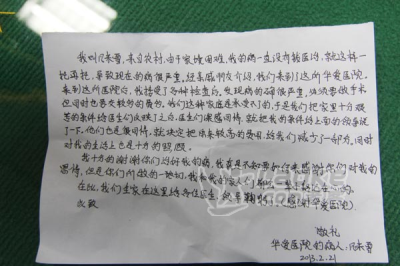 我叫 来自农村,由于家境困难,我的病一直没有就医治,就这样一
拖再拖,导致现在的病很严重,经亲戚朋友介绍,我们来到了这所华爱医院,
来到这所医院后,我接受了各种检查后,发现病的确很严重,必须要做手术
但同时也要交较多的费用,我们这种家庭是承受不了的,于是我们把家里十分艰
苦的条件给医生们反映了之后,医生们很感同情,就把我的条件给上面的领导说
了一下,他们也是很同情,就决定把原来较高的费用,给我们减少了一部分,同时
对我的生活上也是十分的照顾。
我十分的谢谢你们治好我的病,我真是不知要如何来感谢你们对我的
恩情,但是你们所做的一切,我和我的家人们
在此,我们全家在这里给各位医生, 鞠躬 感谢华爱医院。
此致
敬礼
华爱医院的病人:
2013.2.21